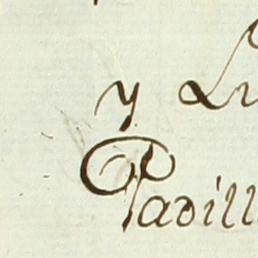 y Lu
Padill